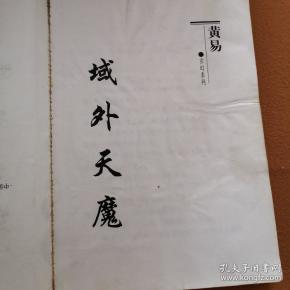 黄易
●玄幻系列
域外天魔
中
孔夫子旧书网